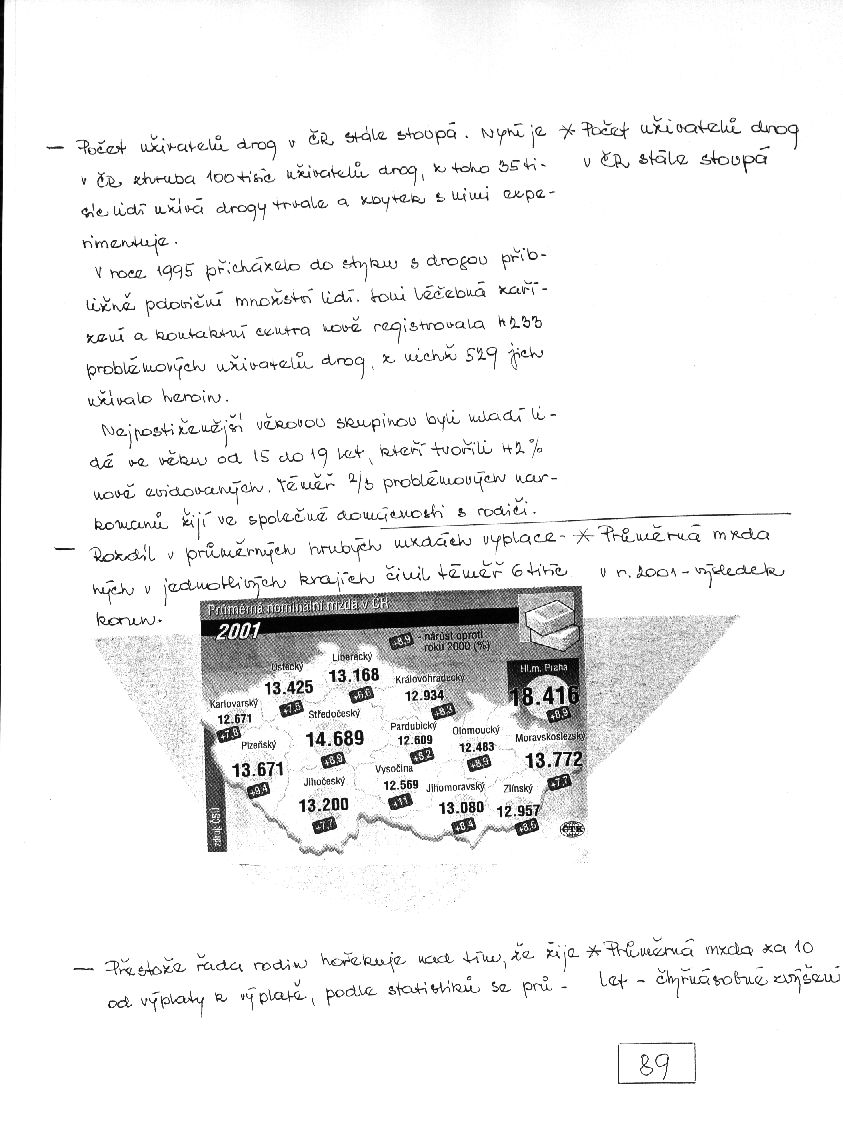 — Počet uživatelů drog v ČR stále stoupá. Nyní je
v ČR zhruba 100 tisíc uživatelů drog, z toho 35 ti-
síc lidí užívá drogy trvale a zbytek s nimi expe-
rimentuje.
V roce 1995 přicházelo do styku s drogou přib-
ližně poloviční množství lidí. Loni léčebná zaří-
zení a kontaktní centra nově registrovala 4233
problémových uživatelů drog, z nichž 529 jich
užívalo heroin.
Nejpostiženější věkovou skupinou byli mladí li-
dé ve věku od 15 do 19 let, kteří tvořili 42%
nově evidovaných. Téměř 2/3 problémových nar-
komanů žijí ve společné domácnosti s rodiči.
* Počet uživatelů drog
v ČR stále stoupá
— Rozdíl v průměrných hrubých mzdách vyplace-
ných v jednotlivých krajích činil téměř 6 tisíc
korun.
* Průměrná mzda
v r. 2001 - výsledek
Průměrná nominální mzda v ČR
2001
+8,9 - nárůst oproti
roku 2000 (%)
Hl.m. Praha
18.416
+8,9
Ústecký
13.425
+7,8
Liberecký
13.168
Královéhradecký
12.934
Karlovarský
12.671
Středočeský
14.689
+8,9
Pardubický
12.609
Olomoucký
12.483
+8,9
Moravskoslezský
13.772
+7,7
Plzeňský
13.671
Vysočina
12.569
+11
Jihočeský
13.200
+7,7
Jihomoravský
13.080
+8,4
Zlínský
12.957
zdroj: ČSÚ
ČTK
— Přestože řada rodin hořekuje nad tím, že žije
od výplaty k výplatě, podle statistiků se prů-
* Průměrná mzda za 10
let - čtyřnásobné zvýšení
89